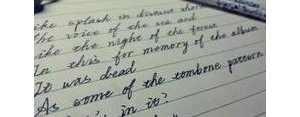 like splash in disease
the voice of the sea and
like the night of the
In this for memory of the album
It was dead
As some of the tombone pattern
in it?